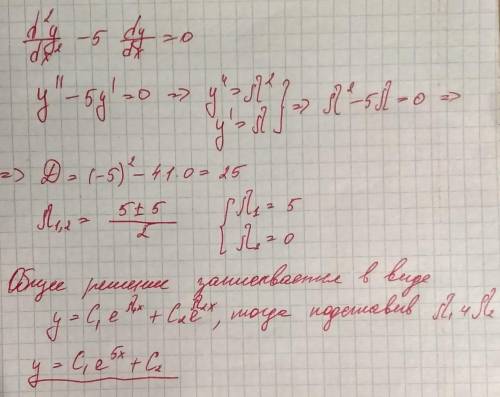 d²y/dx² - 5 dy/dx = 0
y'' - 5y' = 0 => y'' = λ² y' = λ } => λ² - 5λ = 0 =>
=> D = (-5)² - 4·1·0 = 25
λ₁,₂ = (5 ± 5)/2 { λ₁ = 5 λ₂ = 0
Общее решение записывается в виде
y = C₁e^λ₁x + C₂e^λ₂x, тогда подставив λ₁ и λ₂
y = C₁e^5x + C₂